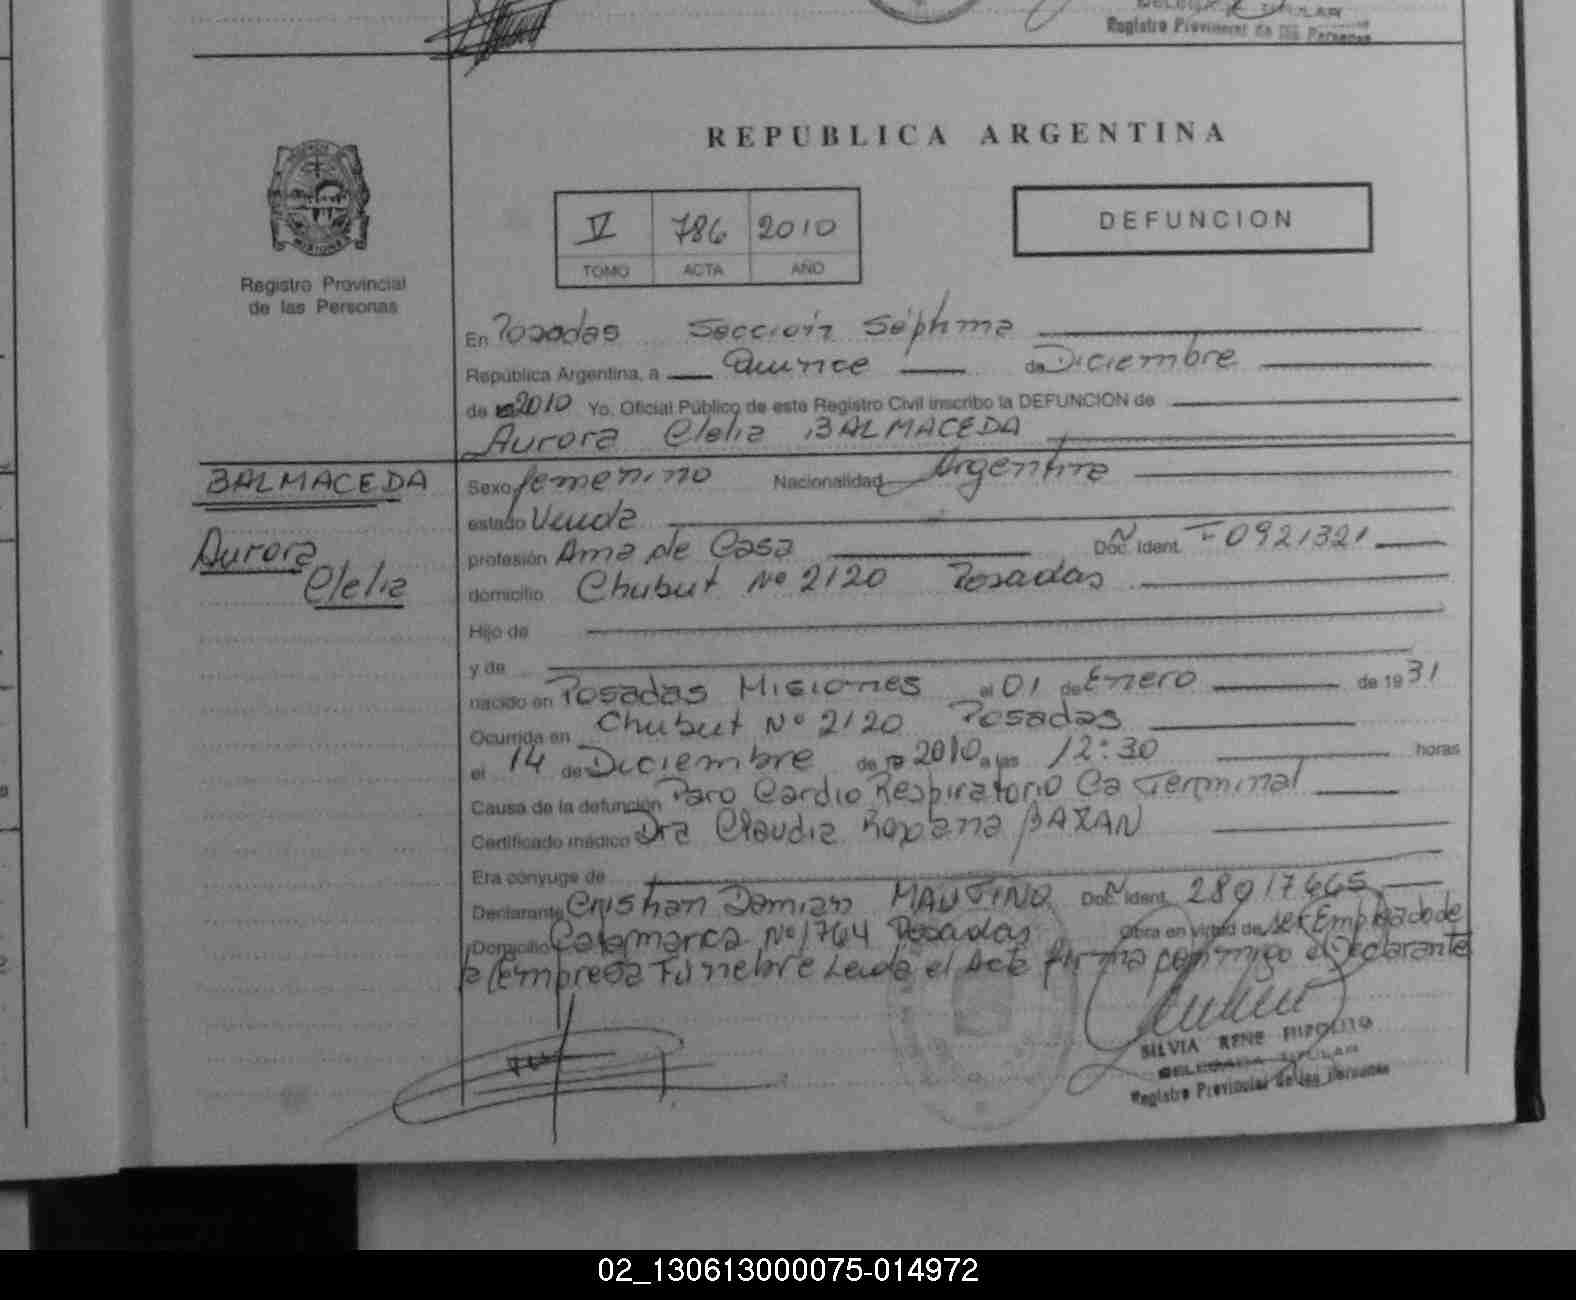 Registro Provincial de las Personas
REPUBLICA ARGENTINA
V 786 2010
TOMO ACTA AÑO
DEFUNCION
MISIONES
Registro Provincial
de las Personas
En Posadas Sección Séptima
República Argentina, a Quince de Diciembre
de 2010 Yo, Oficial Público de este Registro Civil inscribo la DEFUNCION de
Aurora Clelia BALMACEDA
BALMACEDA
Aurora
Clelia
Sexo femenino Nacionalidad Argentina
estado Viuda
profesión Ama de Casa Doc. Ident. F 0921321
domicilio Chubut Nº 2120 Posadas
Hijo de
y de
nacido en Posadas Misiones el 01 de Enero de 1931
Ocurrida en Chubut Nº 2120 Posadas
el 14 de Diciembre de 2010 a las 12:30 horas
Causa de la defunción Paro Cardio Respiratorio Ca Terminal
Certificado médico Dra Claudia Roxana BAZAN
Era cónyuge de
Declarante Cristian Damian MAUTINO Doc. Ident. 28017665
Domicilio Catamarca Nº 1764 Posadas Obra en virtud de ser Empleado de
la Empresa Fúnebre Leida el Acta firma conmigo el Declarante
SILVIA RENE HIPOLITO
DELEGADA TITULAR
Registro Provincial de las Personas
02_130613000075-014972